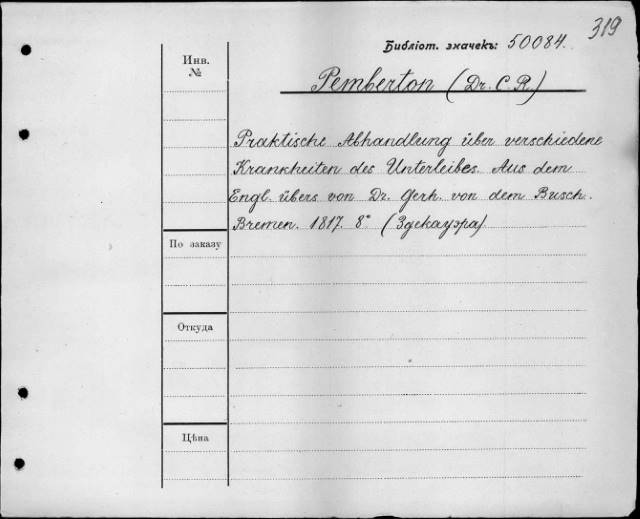 319
Библіот. значекъ: 50084.
Инв.
№
Pemberton (Dr. C. R.)
Praktische Abhandlung über verschiedene
Krankheiten des Unterleibes. Aus dem
Engl. übers von Dr. Gerh. von dem Busch.
Bremen. 1817. 8° (Здекауэра)
По заказу
Откуда
Цѣна